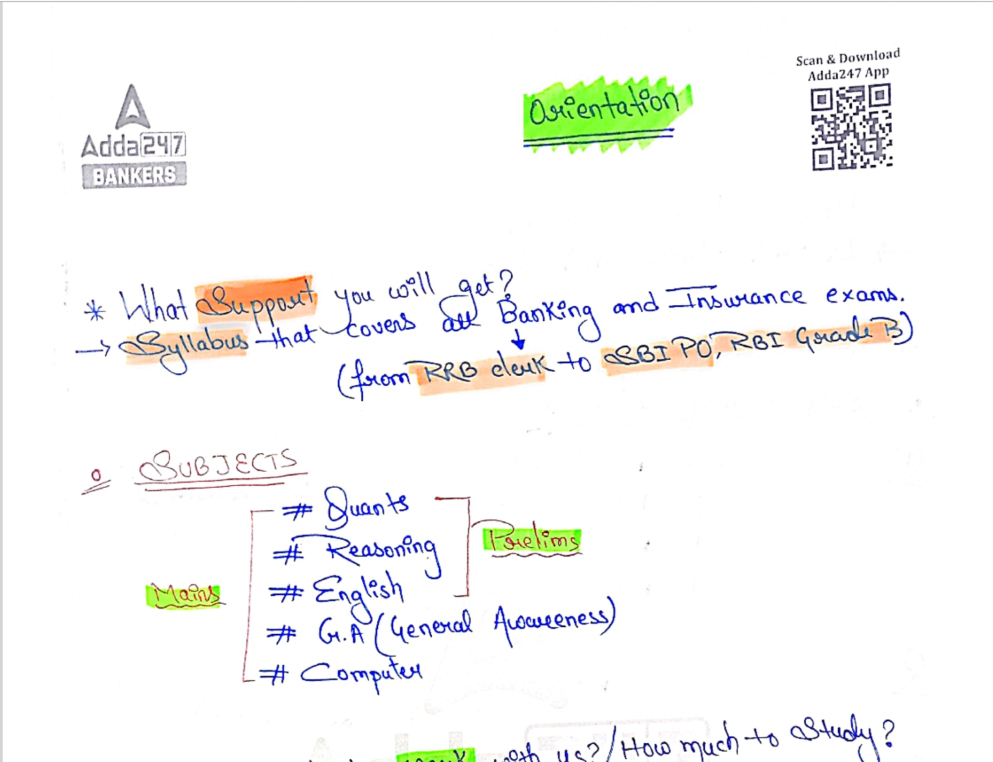 Scan & Download
Adda247 App
Orientation
Adda247
BANKERS
* What Support you will get?
→ Syllabus that covers all Banking and Insurance exams.
(from RRB clerk to SBI PO, RBI Grade B)
SUBJECTS
# Quants
# Reasoning
Prelims
# English
Mains
# G.A (General Awareness)
# Computer
with us?/How much to Study?